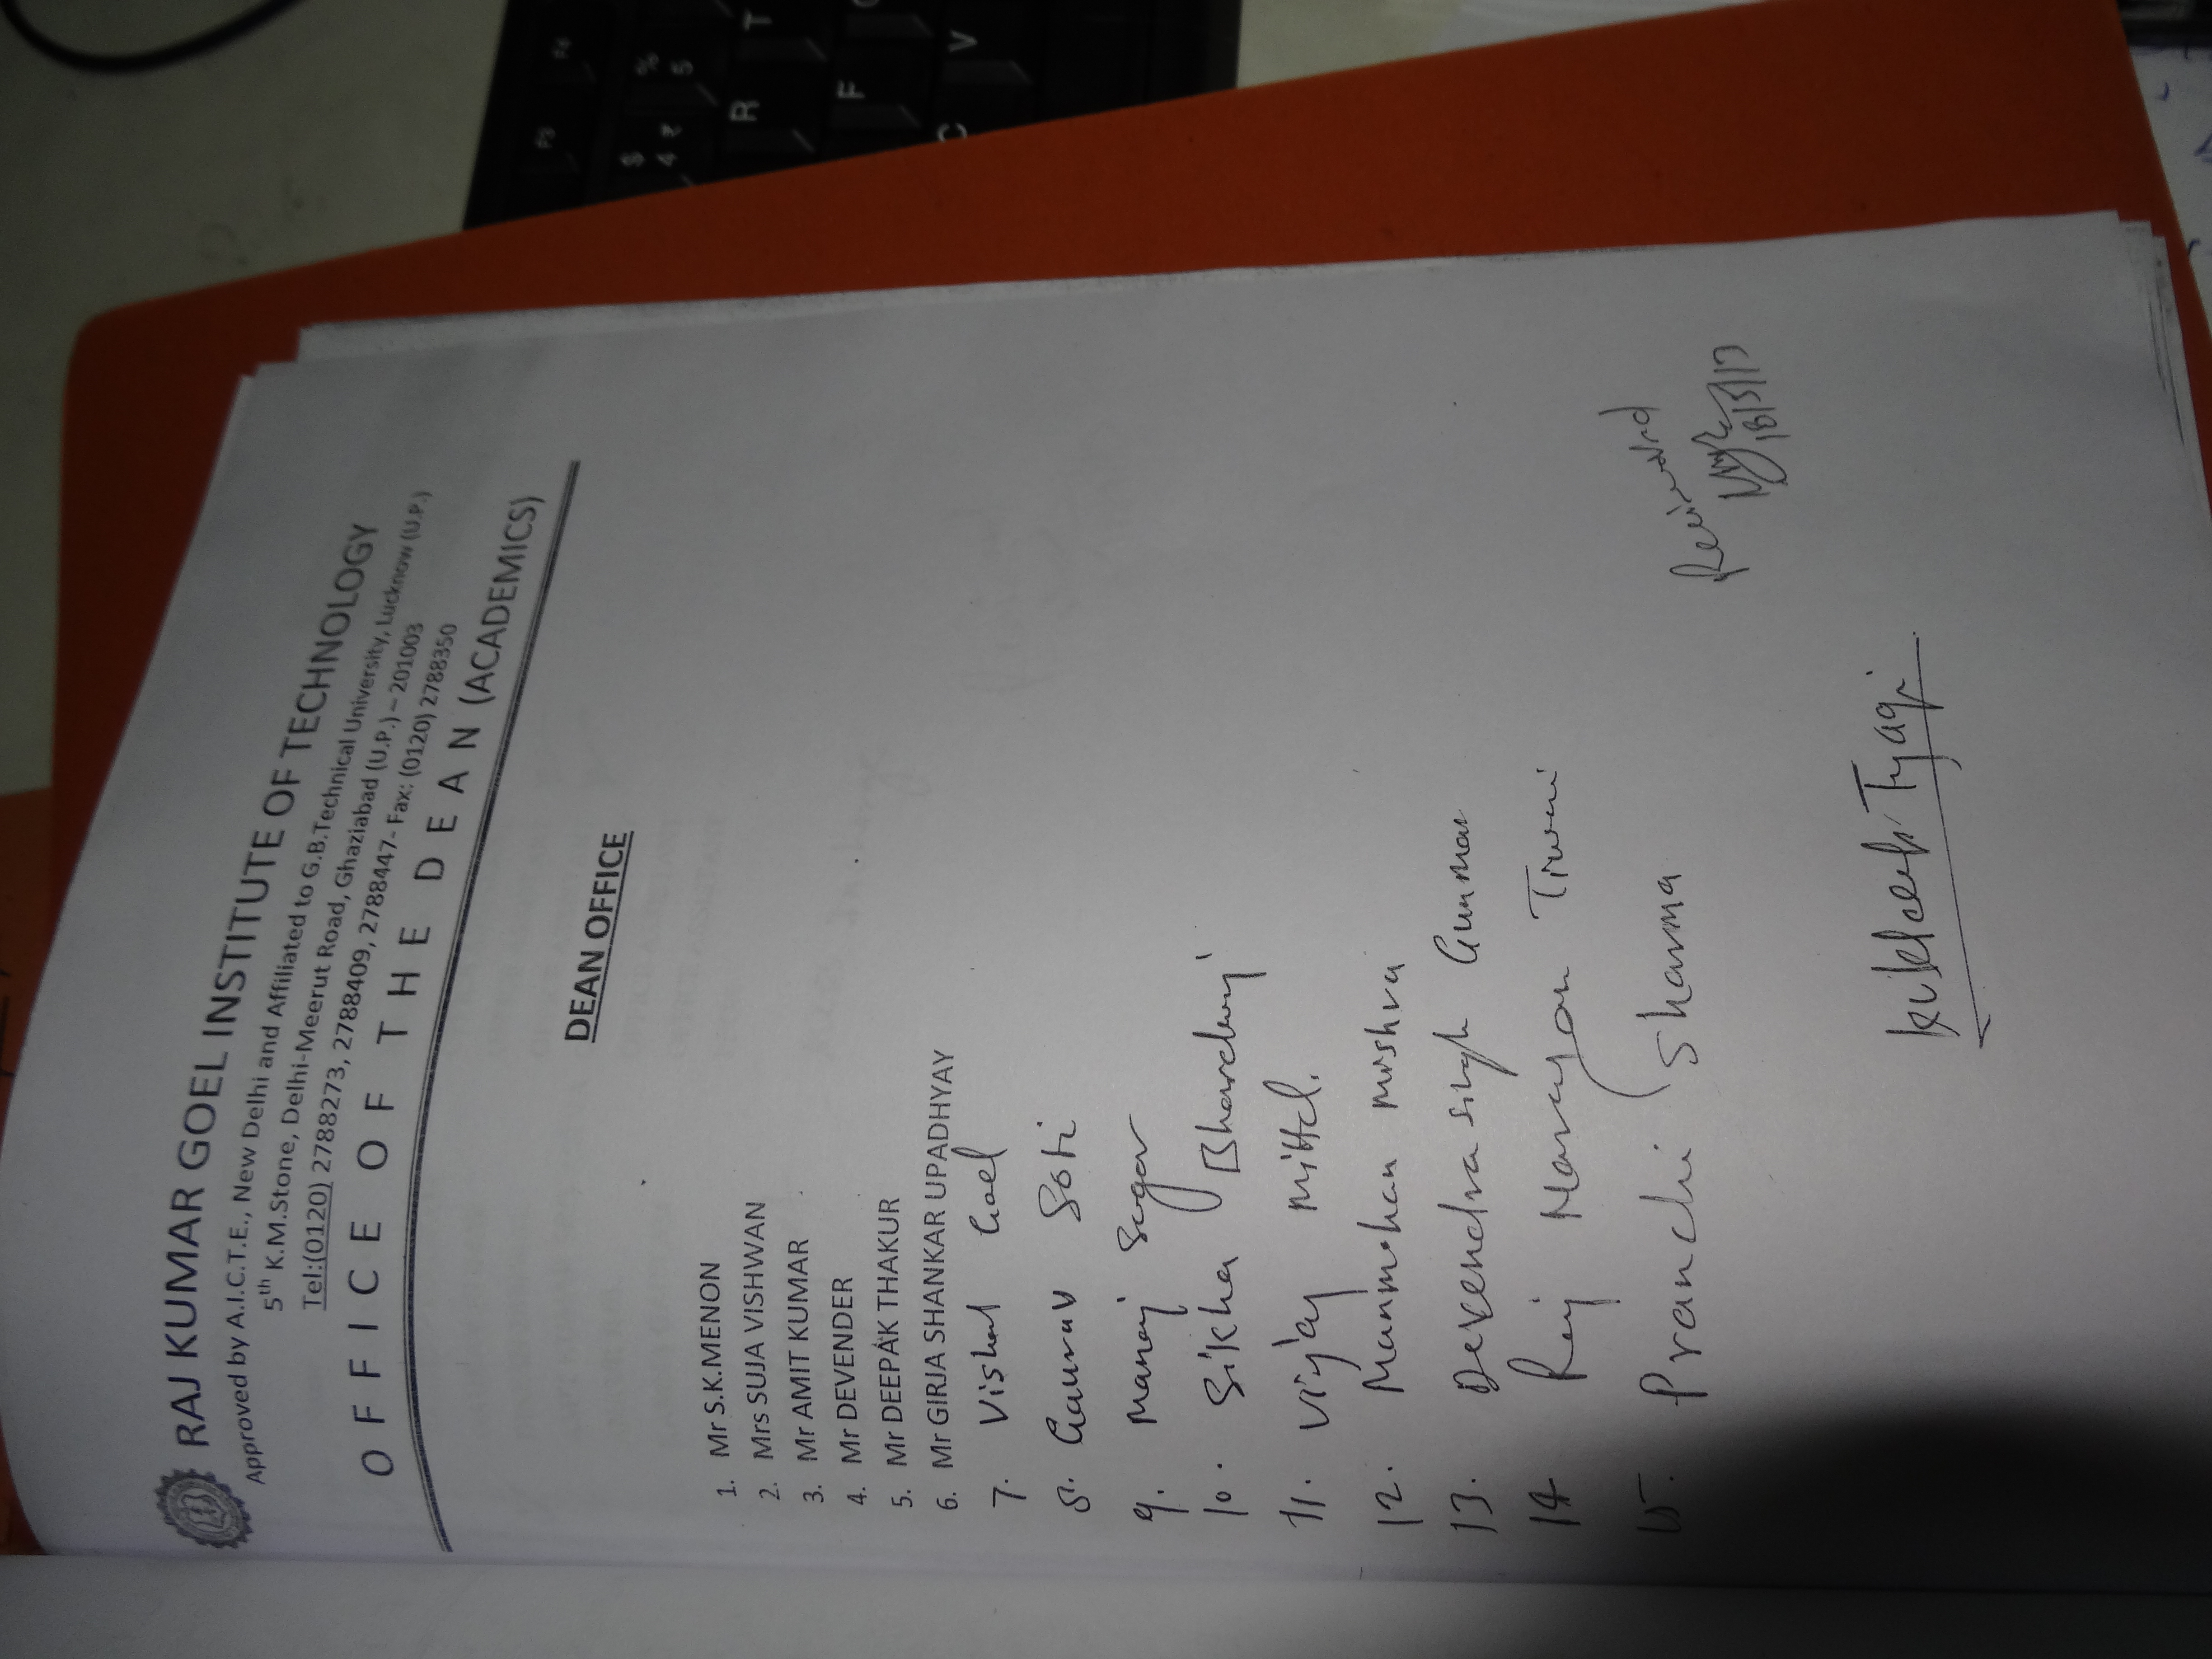 RAJ KUMAR GOEL INSTITUTE OF TECHNOLOGY
Approved by A.I.C.T.E., New Delhi and Affiliated to G.B.Technical University, Lucknow (U.P.)
5th K.M.Stone, Delhi-Meerut Road, Ghaziabad (U.P.) – 201003
Tel:(0120) 2788273, 2788409, 2788447- Fax: (0120) 2788350
OFFICE OF THE DEAN (ACADEMICS)
DEAN OFFICE
1. Mr S.K.MENON
2. Mrs SUJA VISHWAN
3. Mr AMIT KUMAR
4. Mr DEVENDER
5. Mr DEEPAK THAKUR
6. Mr GIRJA SHANKAR UPADHYAY
7. Vishal Goel
8. Gaurav Soti
9. Manoj Sagar
10. Sikha Bhardwaj
11. Vijay Mittal.
12. Manmohan Mishra
13. Devendra singh
14 Raj Narayan Tiwari
15. Pranchi Sharma
Kuldeep Tyagi
F4
F3
% 5
$ 4 ₹
R T
F
C V